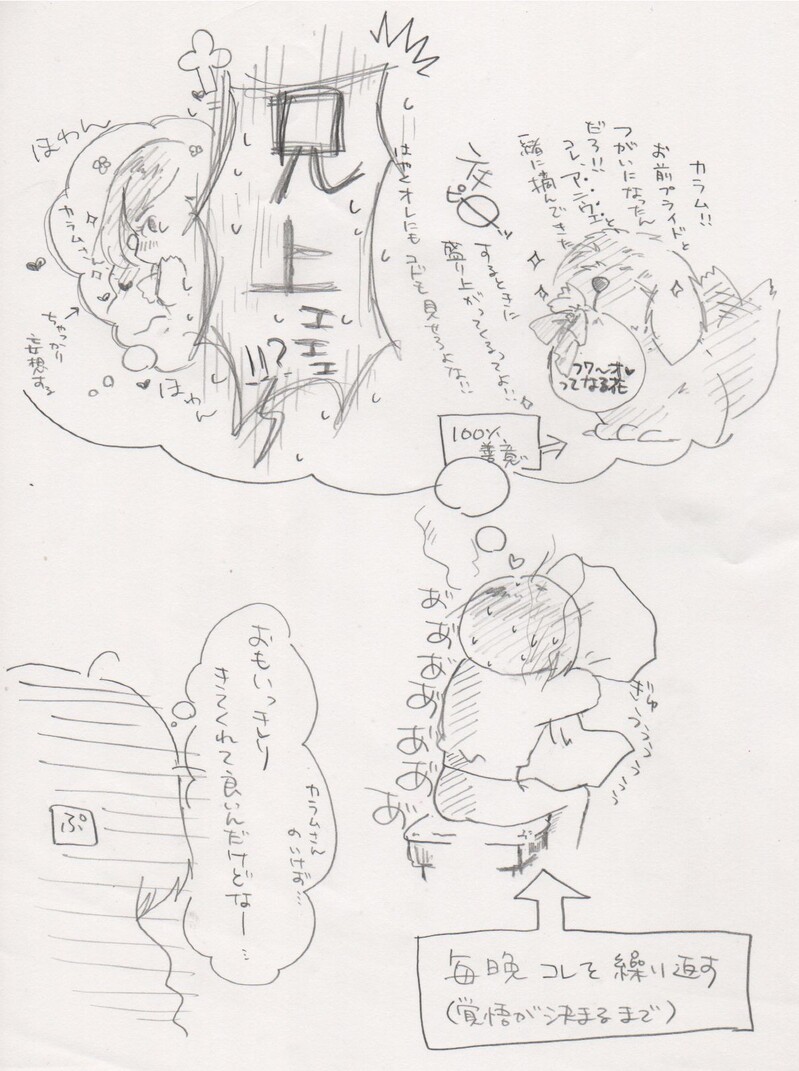 カラム!!
お前プライドと
つがいになったん
だろ!!!
コレ、アニヴェと
一緒に摘んできた
フワ〜オ♥
ってなる花
100%
善意
夜
するときに
盛り上がってしまうよ!!
はやくオレにもコドモ見せろよな!!
兄
上
エエエ
!!?
ほわん
カラムさん
ちゃっかり
妄想する
ほわん
あ゛あ゛あ゛あ゛あ゛あ゛あ゛
ぎゅううううう
おもいっきり
きてくれて良いんだけどなー…
カラムさん
のいけず…
ぷ
毎晩コレを繰り返す
(覚悟が決まるまで)